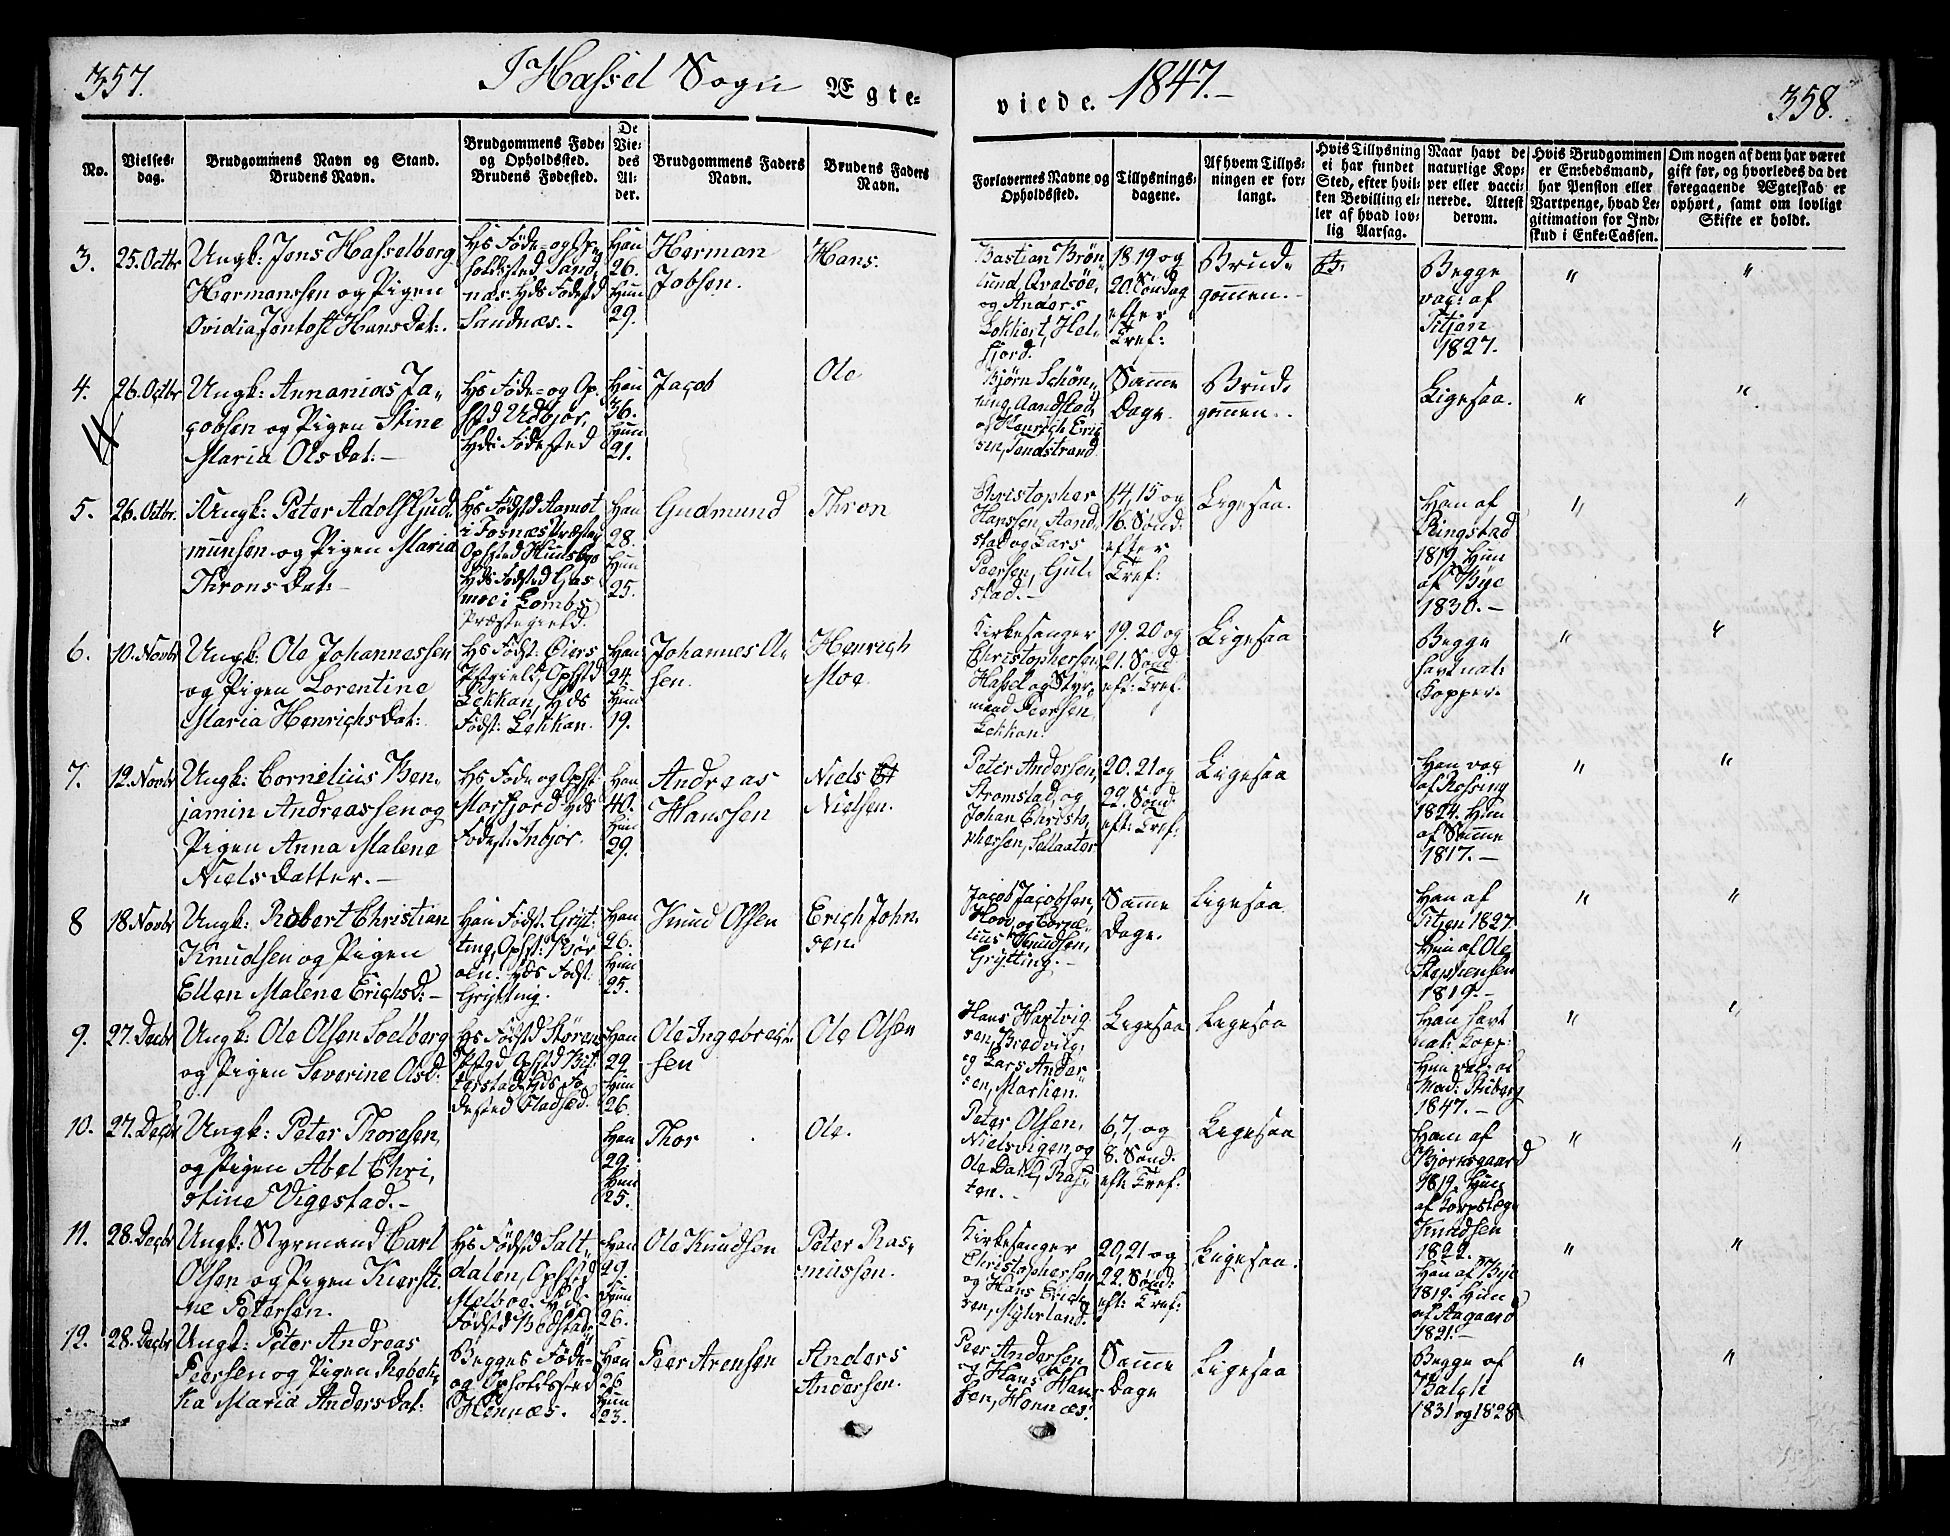 357.
I Hassel Sogn Ægte-
viede. 1847.-
358.
No.
Vielses-
dag.
Brudgommens Navn og Stand.
Brudens Navn.
Brudgommens Føde-
og Opholdssted.
Brudens Fødested.
De
Vie-
des
Al-
der.
Brudgommens Faders
Navn.
Brudens Faders
Navn.
Forlovernes Navne og
Opholdssted.
Tillysnings-
dagene.
Af hvem Tillys-
ningen er for-
langt.
Hvis Tillysning
ei har fundet
Sted, efter hvil-
ken Bevilling el-
ler af hvad lov-
lig Aarsag.
Naar havt de
naturlige Kop-
per eller vacci-
nerede. Attest
derom.
Hvis Brudgommen
er Embedsmand,
har Pension eller
Vartpenge, hvad Le-
gitimation for Ind-
skud i Enke-Cassen.
Om nogen af dem har været
gift før, og hvorledes da det
foregaaende Ægteskab er
ophørt, samt om lovligt
Skifte er holdt.
3.
25. Octbr
Ungk: Jens Hasselberg
Hermanssen og Pigen
Ovidia Jentoft HansDat:
Hs Føde- og Op-
holdssted Sand-
næs. Hds Fødestd
Sandnæs.-
Han
26.
Hun
29.
Herman
Jobsen.
Hans.
Bastian Brøn-
lund, Qvalsøe,
og Anders
Lokkert, Hel-
fjord.
18.19 og
20. Søndag
efter
Tref:
Brud-
gommen.-
Begge
vac: af
Titjen
1827.
"
"
4.
26. Octbr
Ungk: Annanias Ja-
cobsen og Pigen Stine
Maria OlsDat:-
Hs Føde- og Op-
Hds Fødested
Han
36.
Hun
21.
Jacob
Ole
Bjørn Schøn-
ning, Aandstad,
og Henrich Eric-
sen, Sandstrand
Samme
Dage.
Brud-
gommen.
Ligesaa.
"
"
5.
26. Octbr.
Ungk: Peter Adolf Gud-
munsen og Pigen Maria
ThronsDat:
Hs Fødstd Aamot
i Fosnæs Præstegj
Hds Fødsted Gas
moe i Lombs
Præstegjeld.
Han
28.
Hun
25.
Gudmund
Thron
Christopher
Hanssen, Aand-
stad og Lars
Peersen, Gul-
stad.-
14, 15 og
16. Sønd:
efter
Tref:
Ligesaa.
Han af
Ringstad
1819. Hun
af Bye
1830.-
"
"
6.
10. Novbr
Ungk: Ole Johannessen
og Pigen Lorentine
Maria HenrichsDat:
Hs Fødst: Øiers
Pstgield, Ophstd
Lekkan, Hds
Fødst: Lekkan.
Han
24.
Hun
19.
Johannes Ol-
sen.
Henrich
Moe.
Kirkesanger
Christophersen,
Hassel og Styr-
mand Peersen,
Lekkan.
19. 20 og
21. Sønd
eft: Tref:
Ligesaa
Begge
havt nat:
Kopper.
"
"
7.
12. Novbr
Ungk: Cornelius Ben-
jamin Andreassen og
Pigen Anna Malene
Niels Datter.-
Hs Føde og Ophst:
Morfjord Hds
Fødest: Indfjor.
Han
40.
Hun
29.
Andreas
Hanssen
Niels
Nielsen.
Peter Andersen,
Strømstad, og
Johan Christo-
phersen, Sellaater
20. 21 og
22. Sønd:
eft: Tref:
Ligesaa
Han vac
af Røssing
1824. Hun
af Samme
1817.-
"
"
8
18 Novbr
Ungk: Robert Christian
Knudsen og Pigen
Ellen Malene Erichsd:-
Han Fødst: Gryt-
ting, Ophst: Bjør
oen. Hds Fødst:
Grytting.
Han
26.
Hun
25.
Knud Olsen
Erich John-
sen.
Jacob Jacobsen,
og Corne-
lius Knudsen,
Grytting.-
Samme
Dage.
Ligesaa
Han af
Titjen 1827
Hun af Ole
Steffensen
1819.-
"
"
9.
27. Decbr
Ungk: Ole Olsen Soelberg
og Pigen Severine Olsd:
Hs Fødstd Størens
Pstgd Ophstd
Hds Fø-
dested Fladsæd.
Han
29.
Hun
26.
Ole Ingebregt-
sen
Ole Olsen
Hans Hartvig-
sen, Bredvig,
og Lars Ander-
sen, Marken.
Ligesaa
Ligesaa
Han havt
nat: Kopp:
Hun vac: af
Mad: Stuberg
1847.-
"
"
10.
27. Decbr
Ungk: Peter Thoresen,
og Pigen Abel Chri-
stine Vigestad.-
Han
29.
Hun
25.
Thor
Ole.
Peter Olsen,
Nielsvigen og
Ole Dahl, Raf-
ten.-
6, 7, og
8. Sønd:
eft: Tref:
Ligesaa
Han af
Bjørnsgaard
1819. Hun
Knudsen
1822.
"
"
11.
28. Decbr
Ungk: Styrmand Carl
Olsen og Pigen Kiersti-
ne Petersen.
Hs Fødstd Salt-
dalen, Ophstd
Melboe. Hds
Fødstd Bedstad.
Han
29
Hun
26.
Ole Knudsen
Peter Ras-
mussen.
Kirkesanger
Christophersen
og Hans Erich-
sen, Myhrland.
20, 21 og
22. Sønd:
eft: Tref:
Ligesaa.
Han af Bye
1819. Hun
af Aagaard
1821.-
"
"
12.
28. Decbr
Ungk: Peter Andreas
Peersen og Pigen Rebek-
ka Maria AndersDat:
Begges Føde-
og Opholdssted
Hennæs.
Han
26
Hun
23.
Peer Arensen
Anders
Andersen.
Peer Andersen
og Hans Han-
sen, Hennæs.
Samme
Dage
Ligesaa
Begge af
Balch
1831 og 1828
"
"